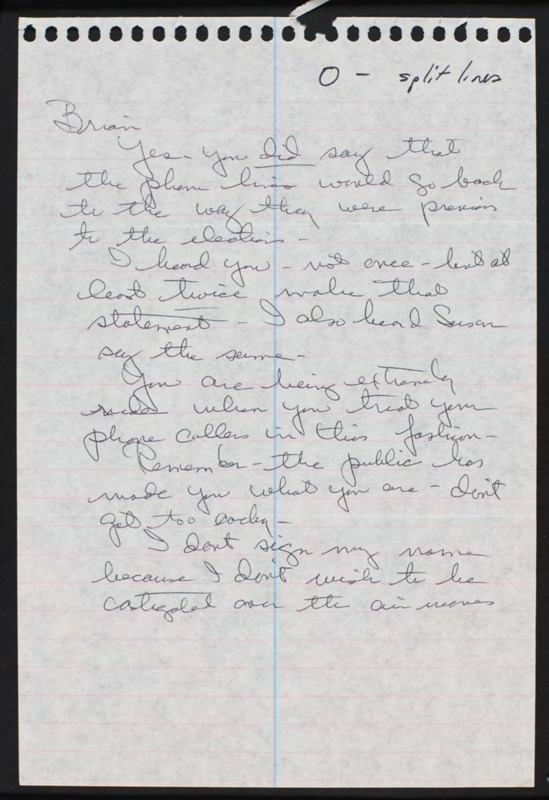 O - split lines
Brian
Yes - you did say that
the phone lines would go back
to the way they were previous
to the elections -
I heard you - not once - but at
least twice make that
statement - I also heard Susan
say the same -
You are being extremely
rude when you treat your
phone callers in this fashion -
Remember - the public has
made you what you are - don't
get too cocky -
I don't sign my name
because I don't wish to be
castigated over the air waves